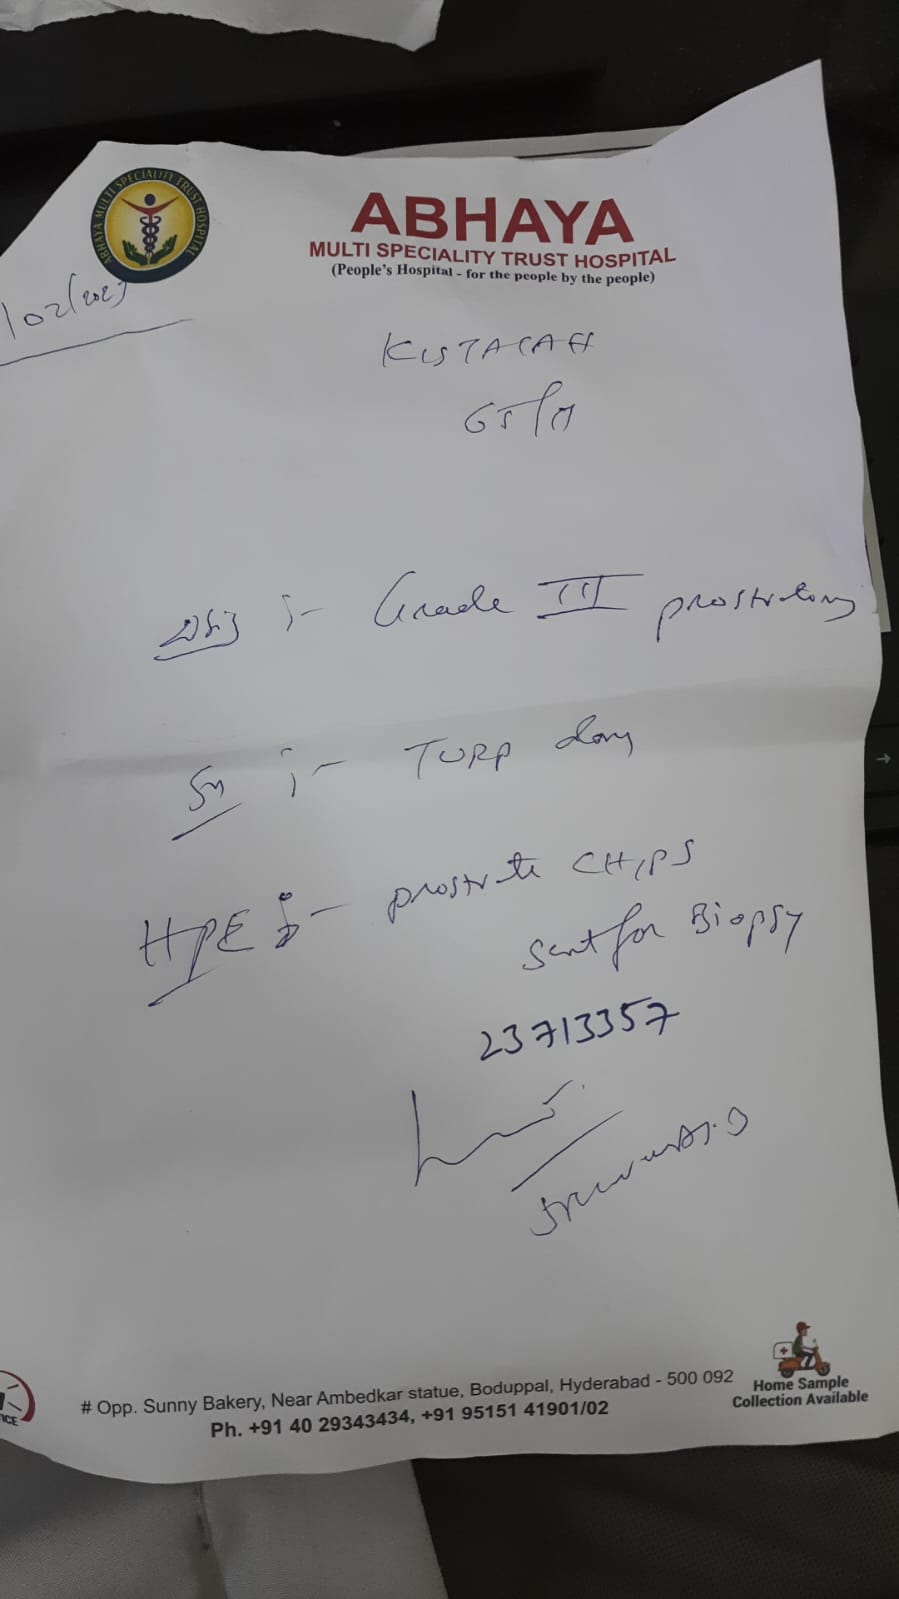 ABHAYA MULTI SPECIALITY TRUST HOSPITAL
ABHAYA
MULTI SPECIALITY TRUST HOSPITAL
(People's Hospital - for the people by the people)
/02/2023
KISTAIAH
65/M
:- Grade III prostatomy
:- TURP done
HPE :- prostrate CHIPS
Sent for Biopsy
23713357
# Opp. Sunny Bakery, Near Ambedkar statue, Boduppal, Hyderabad - 500 092
Ph. +91 40 29343434, +91 95151 41901/02
Home Sample
Collection Available